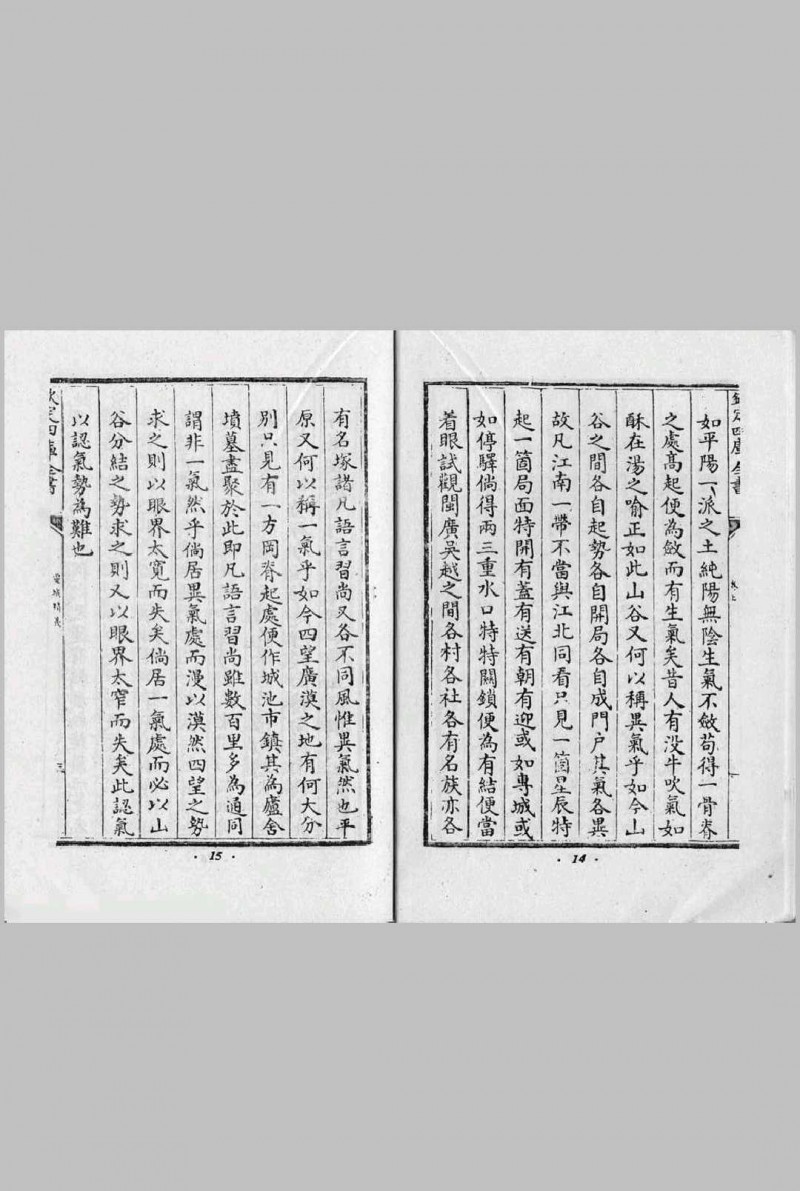 欽定四庫全書
卷上
如平陽一派之土純陽無陰生氣不斂苟得一骨脊
之處高起便為斂而有生氣矣昔人有没牛吹氣如
酥在湯之喻正如此山谷又何以稱異氣乎如今山
谷之間各自起勢各自開局各自成門户其氣各異
故凡江南一帶不當與江北同看只見一箇星辰特
起一箇局面特開有蓋有送有朝有迎或如專城或
如停驛倘得兩三重水口特特關鎖便為有結便當
着眼試觀閩廣吳越之間各村各社各有名族亦各
14
有名塚諸凡語言習尚又各不同風惟異氣然也平
原又何以稱一氣乎如今四望廣漠之地有何大分
别只見有一方岡脊起處便作城池市鎮其為廬舍
墳墓盡聚於此即凡語言習尚雖數百里多為通同
謂非一氣然乎倘居異氣處而漫以漠然四望之勢
求之則以眼界太寬而失矣倘居一氣處而必以山
谷分結之勢求之則又以眼界太窄而失矣此認氣
以認氣勢為難也
欽定四庫全書
靈城精義
三
15